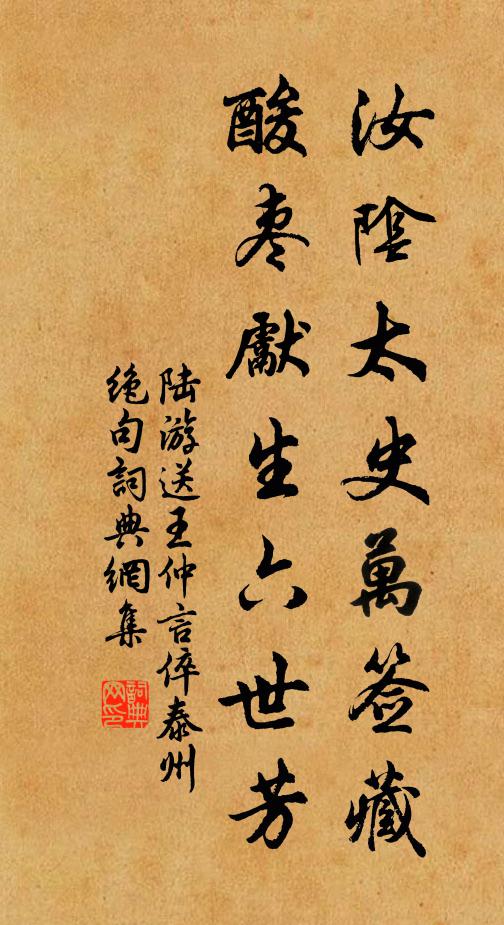 汝陰太史萬签藏
酸棗獻生六世芳
陆游送王仲言倅泰州
绝句詞典網集
詞典网印